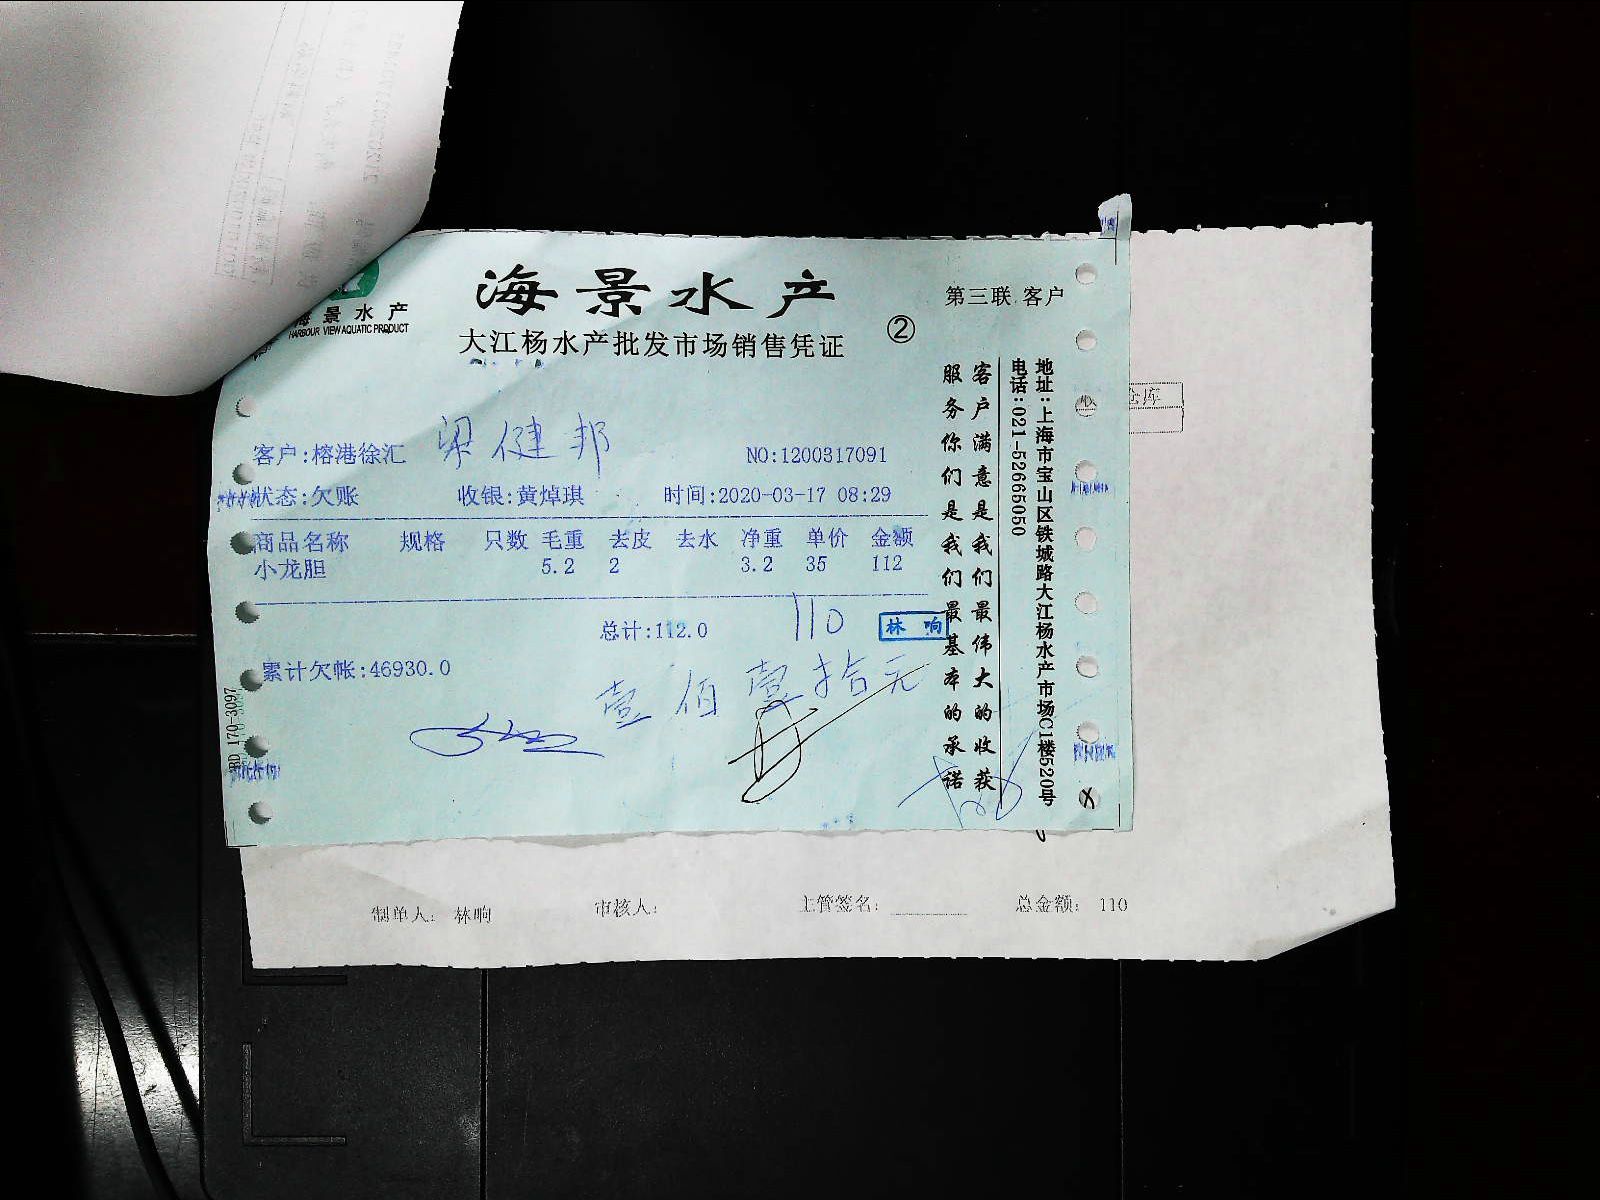 海景水产
海景水产
HARBOUR VIEW AQUATIC PRODUCT
大江杨水产批发市场销售凭证
②
第三联 客户
客户:榕港徐汇
梁健邦
NO:1200317091
状态:欠账 收银:黄焯琪 时间:2020-03-17 08:29
商品名称 规格 只数 毛重 去皮 去水 净重 单价 金额
小龙胆 5.2 2 3.2 35 112
总计:112.0
110
林 响
累计欠帐:46930.0
壹佰壹拾元
客户满意是我们最伟大的收获
服务你们是我们最基本的承诺
地址:上海市宝山区铁城路大江杨水产市场C1楼520号
电话:021-52665050
BD 170-3097
仓库
制单人: 林响 审核人: 主管签名: 总金额: 110